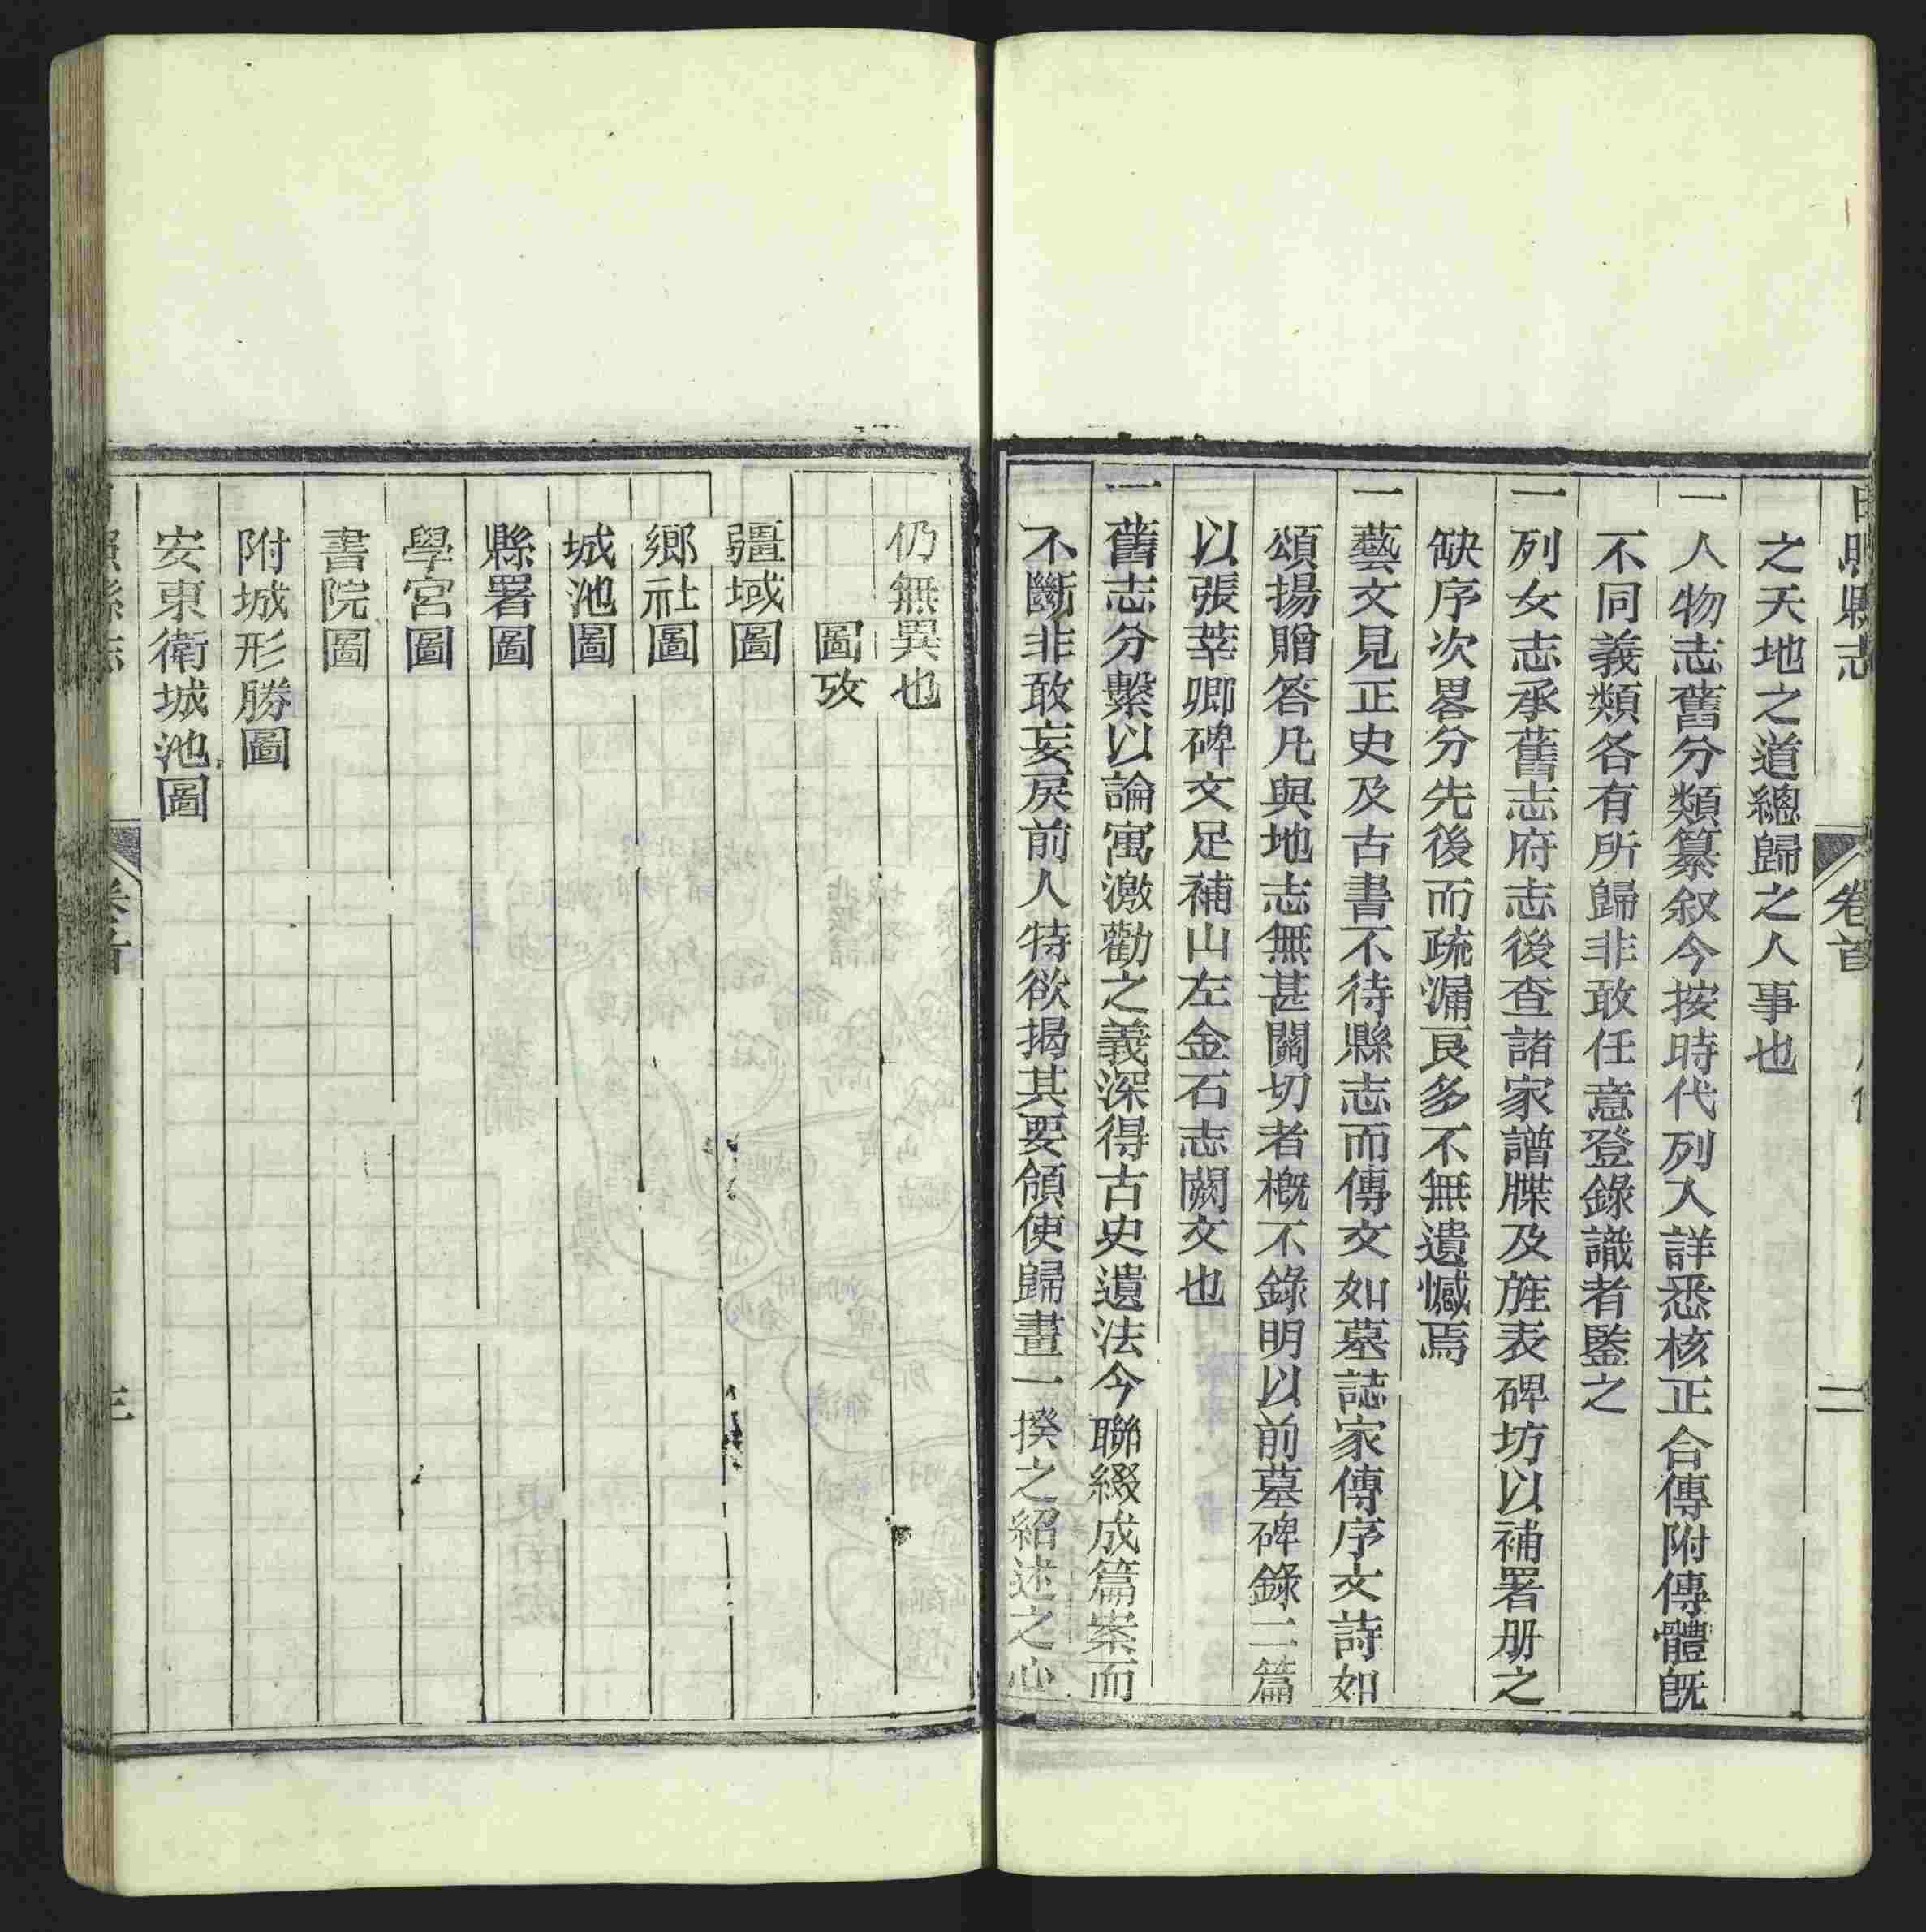 日照縣志
卷首
二
之天地之道總歸之人事也
一人物志舊分類纂叙今按時代列人詳悉核正合傳附傳體既
不同義類各有所歸非敢任意登錄識者鑒之
一列女志承舊志府志後查諸家譜牒及旌表碑坊以補署册之
缺序次畧分先後而疏漏良多不無遺憾焉
一藝文見正史及古書不待縣志而傳文如墓誌家傳序文詩如
頌揚贈答凡與地志無甚關切者概不錄明以前墓碑錄二篇
以張莘卿碑文足補山左金石志闕文也
一舊志分繫以論寓激勸之義深得古史遺法今聯綴成篇案而
不斷非敢妄戾前人特欲揭其要領使歸畫一揆之紹述之心
仍無異也
圖攷
疆域圖
鄉社圖
城池圖
縣署圖
學宮圖
書院圖
附城形勝圖
安東衛城池圖
照縣志
卷首
三